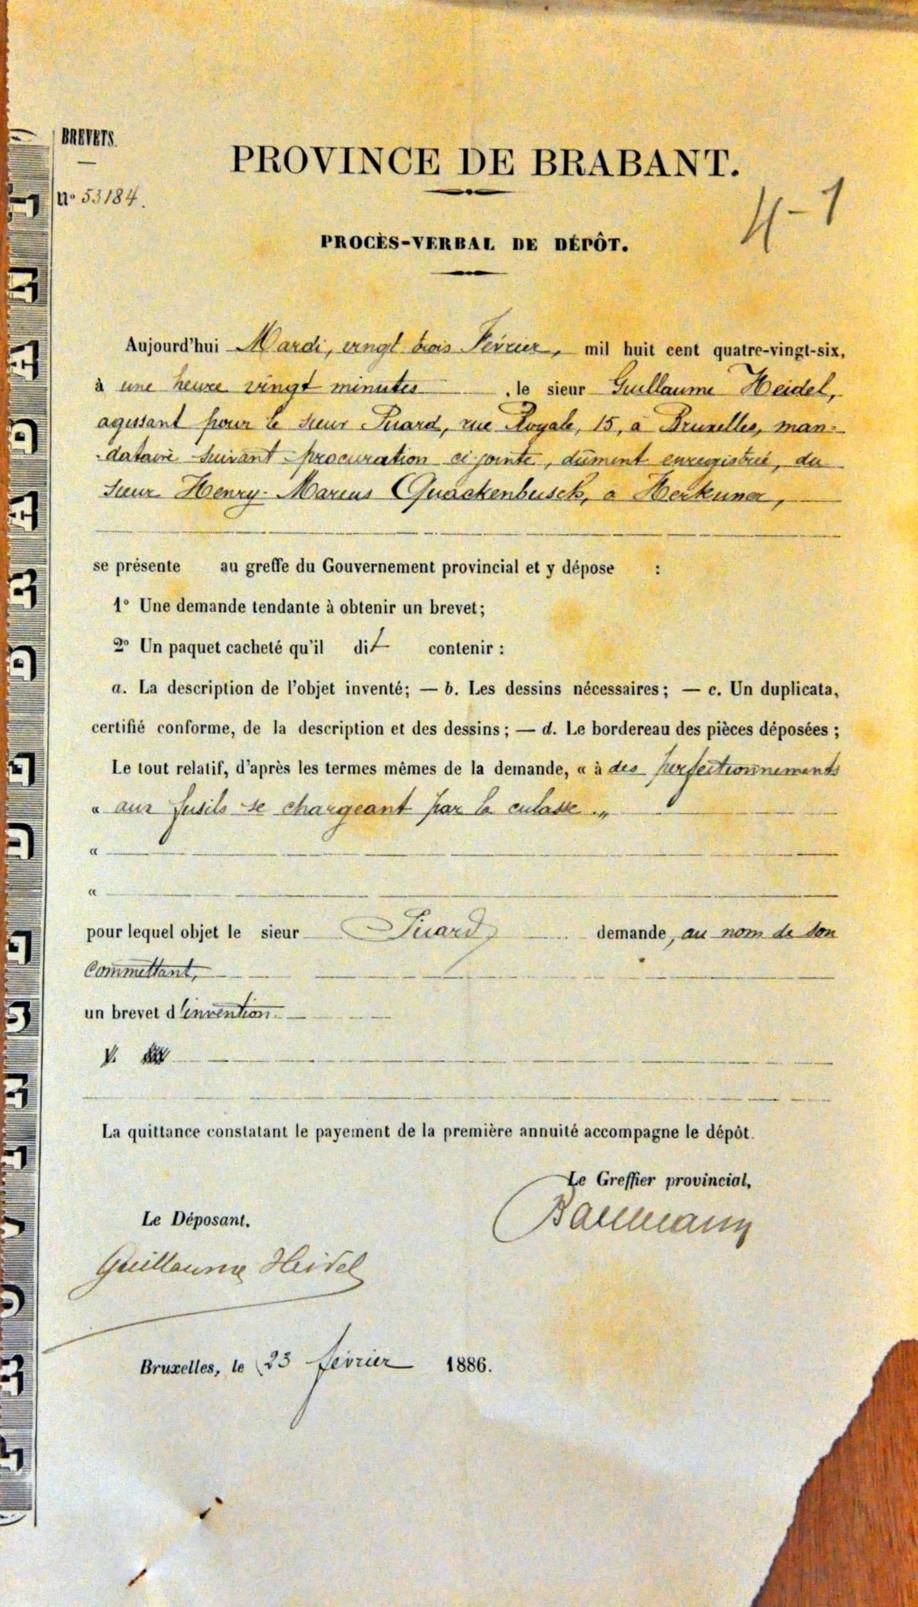 BREVETS.
PROVINCE DE BRABANT.
No 53184.
4-1
PROCÈS-VERBAL DE DÉPÔT.
Aujourd'hui Mardi, vingt trois Février, mil huit cent quatre-vingt-six,
à une heure vingt minutes, le sieur Guillaume Heidel,
agissant pour le sieur Picard, rue Royale, 15, à Bruxelles, man-
-dataire suivant procuration ci-jointe, dûment enregistrée, du
sieur Henry-Marcus Quackenbusch, à Herkimer,
se présente au greffe du Gouvernement provincial et y dépose :
1° Une demande tendante à obtenir un brevet;
2° Un paquet cacheté qu'il dit contenir :
a. La description de l'objet inventé; — b. Les dessins nécessaires; — c. Un duplicata,
certifié conforme, de la description et des dessins; — d. Le bordereau des pièces déposées;
Le tout relatif, d'après les termes mêmes de la demande, « à des perfectionnements
« aux fusils se chargeant par la culasse »
«
«
pour lequel objet le sieur Picard demande, au nom de son
Commettant,
un brevet d'invention
La quittance constatant le payement de la première annuité accompagne le dépôt.
Le Greffier provincial,
Le Déposant.
Guillaume Heidel
Bruxelles, le 23 février 1886.